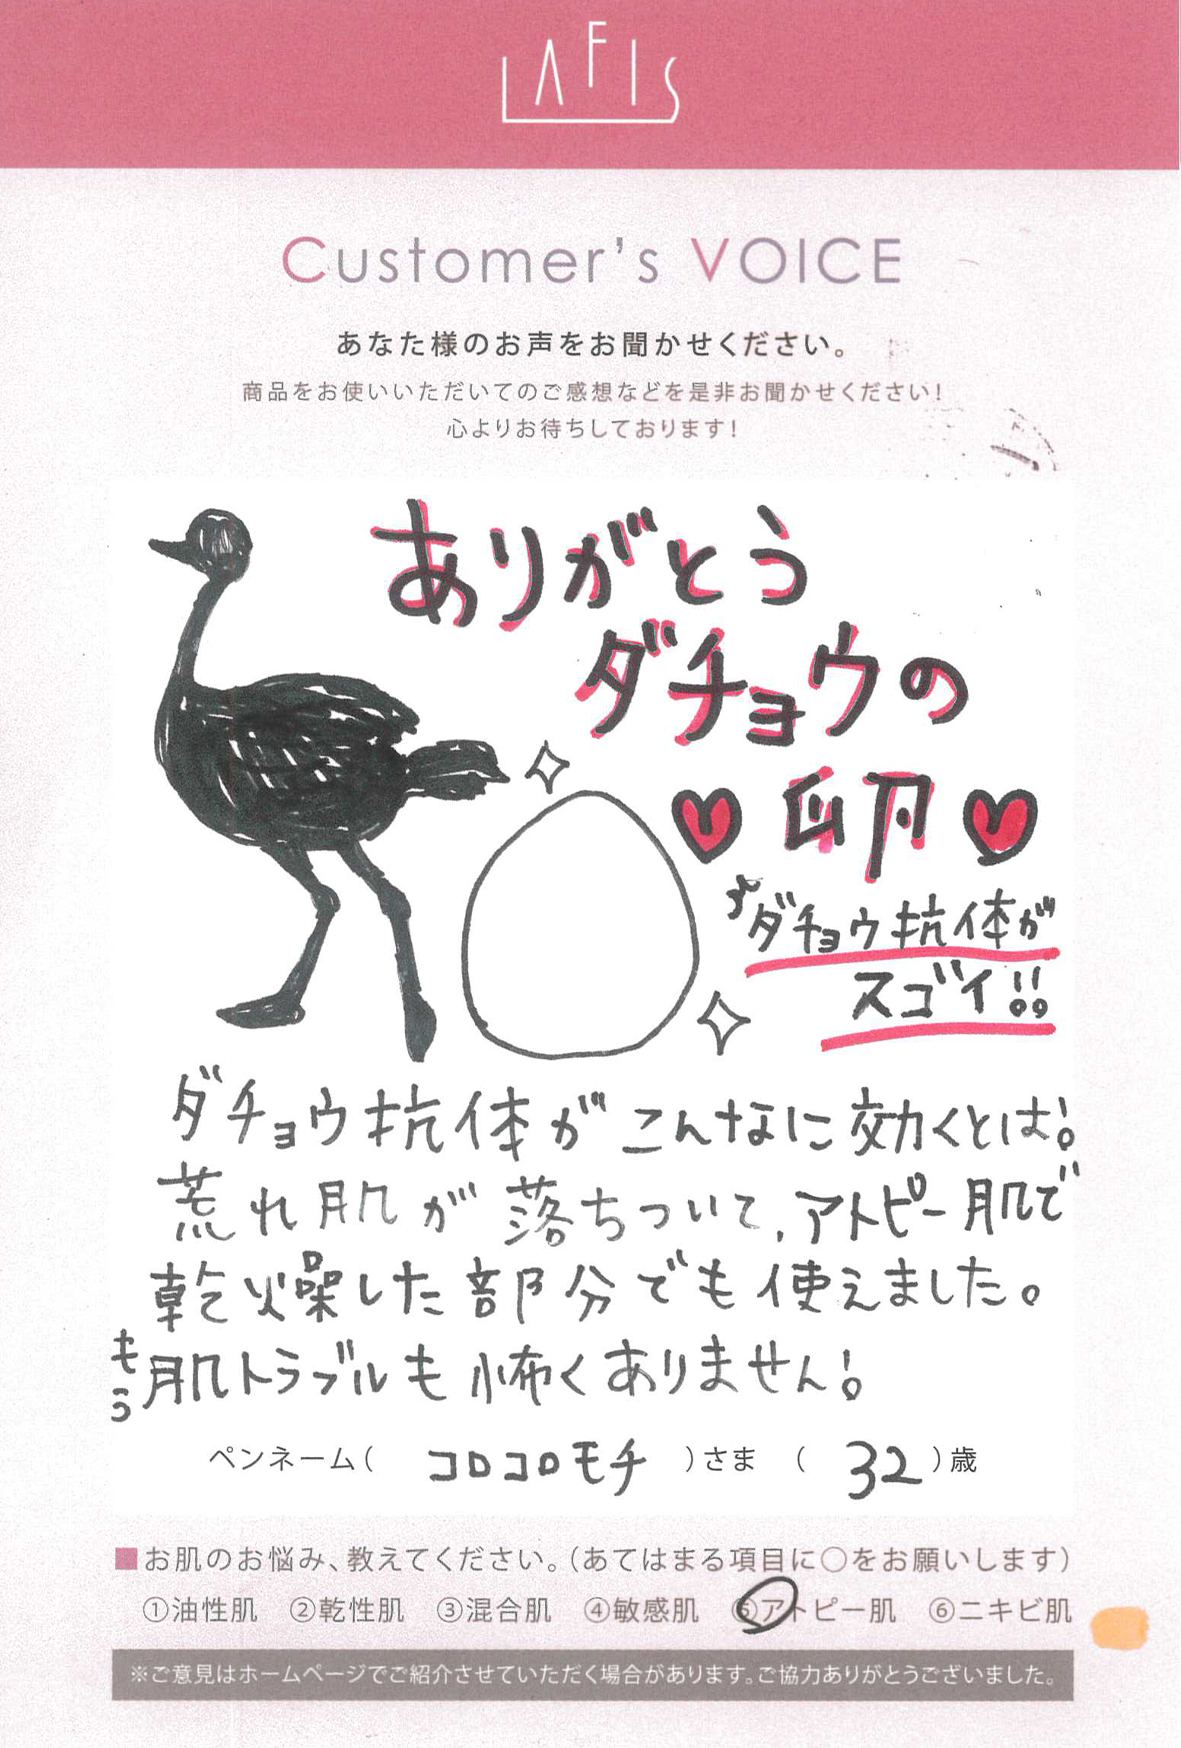 LAFIS
Customer's VOICE
あなた様のお声をお聞かせください。
商品をお使いいただいてのご感想などを是非お聞かせください！
心よりお待ちしております！
ありがとう
ダチョウの
♥卵♥
ダチョウ抗体が
スゴイ!!
ダチョウ抗体がこんなに効くとは!
荒れ肌が落ちついて、アトピー肌で
乾燥した部分でも使えました。
もう肌トラブルも怖くありません!
ペンネーム（ コロコロモチ ）さま （ 32 ）歳
■お肌のお悩み、教えてください。（あてはまる項目に○をお願いします）
①油性肌 ②乾性肌 ③混合肌 ④敏感肌 ⑤アトピー肌 ⑥ニキビ肌
※ご意見はホームページでご紹介させていただく場合があります。ご協力ありがとうございました。